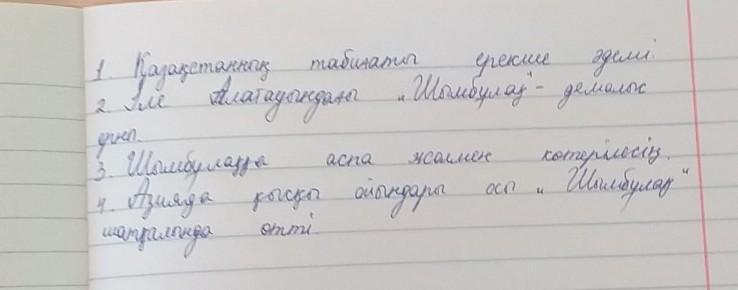 1. Қазақстанның табиғаты ерекше әдемі.
2. Іле Алатауындағы „Шымбұлақ"- демалыс
орны.
3. Шымбұлаққа аспа жолмен көтерілесің.
4. Азияда қысқы ойындары осы „Шымбұлақ"
шаңғалында өтті.